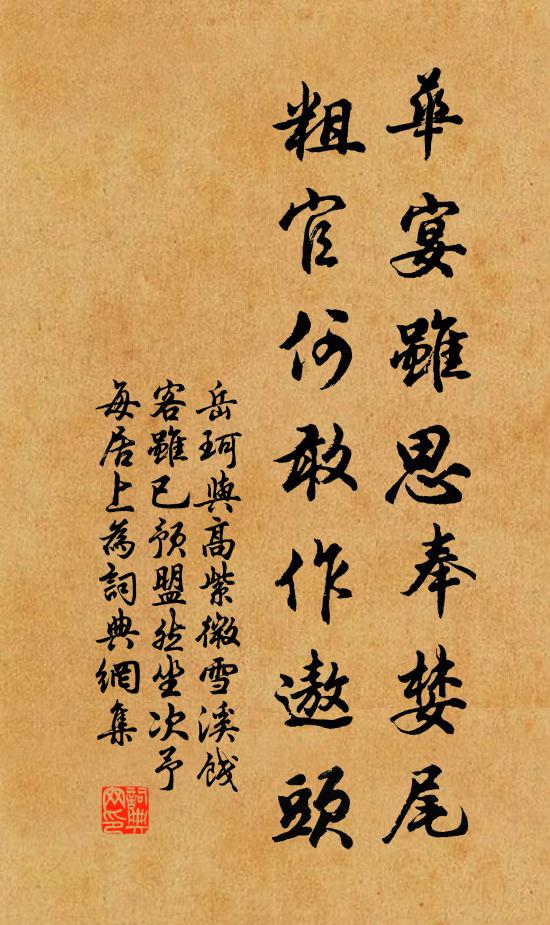 華宴雖思奉婪尾
粗官何敢作遨頭
岳珂與高紫微雪溪餞
客雖已預盟然坐次予
每居上為詞典網集
詞典
网印